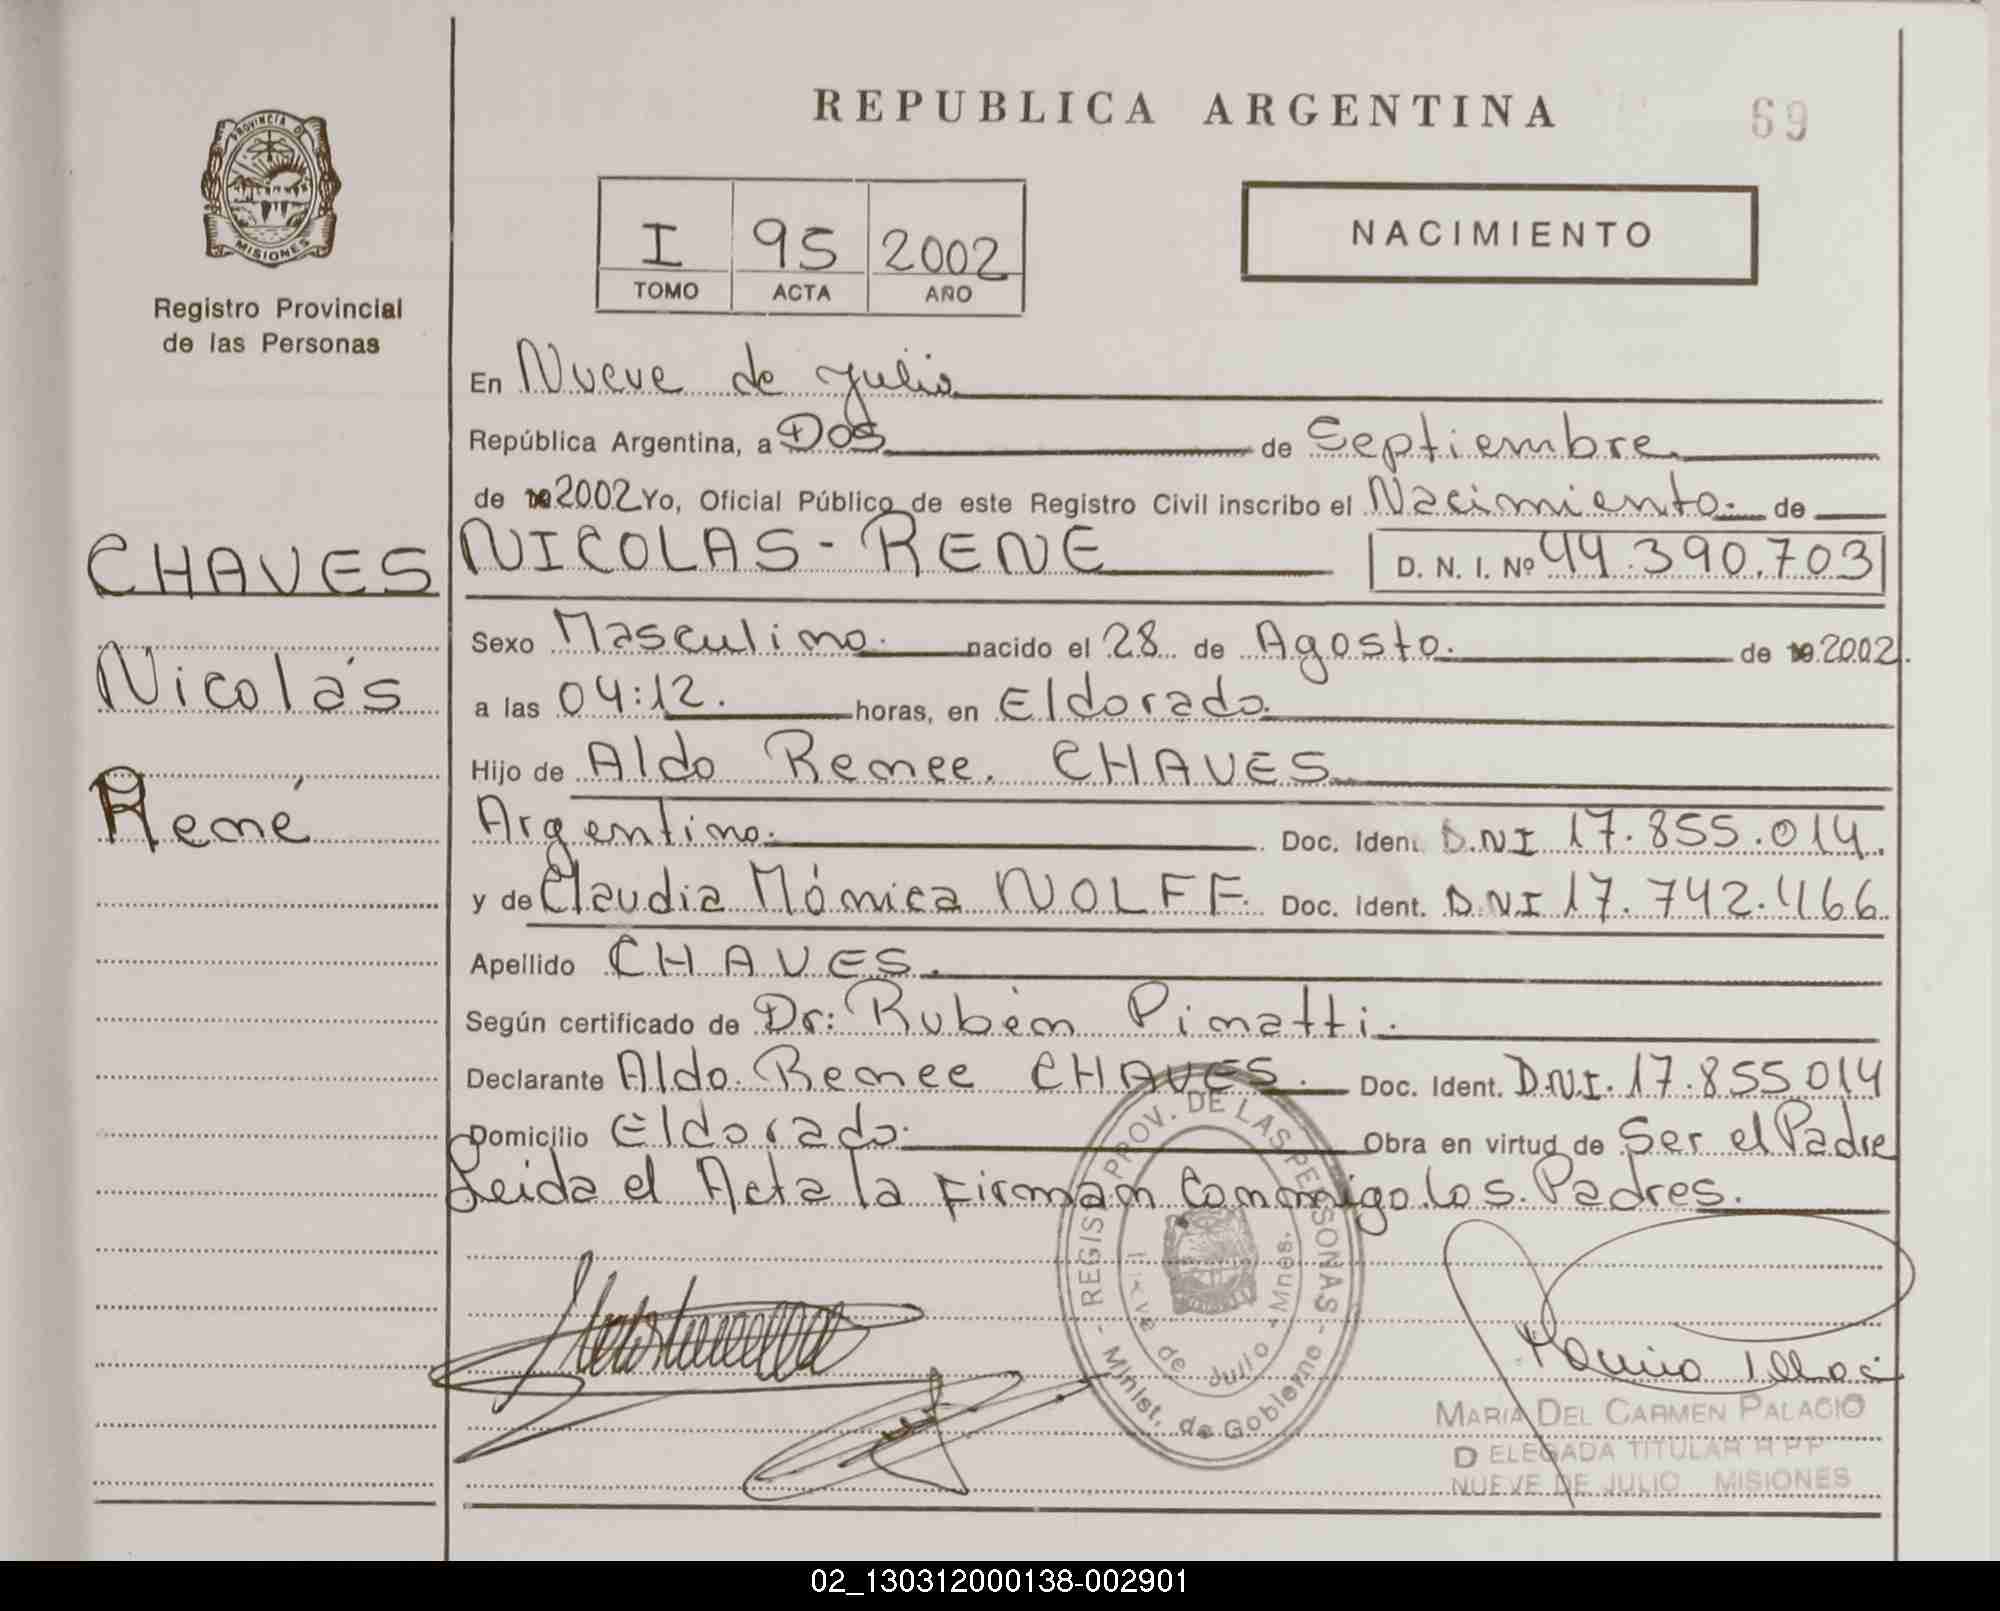 REPUBLICA ARGENTINA
69
PROVINCIA DE
MISIONES
Registro Provincial
de las Personas
I 95 2002
TOMO ACTA AÑO
NACIMIENTO
En Nueve de Julio
República Argentina, a Dos de Septiembre
de 2002 Yo, Oficial Público de este Registro Civil inscribo el Nacimiento de
CHAVES
Nicolás
René
NICOLAS - RENE D. N. I. Nº 44.390.703
Sexo Masculino. nacido el 28 de Agosto. de 2002.
a las 04:12. horas, en Eldorado.
Hijo de Aldo Renee. CHAVES
Argentino. Doc. Iden. D.N.I 17.855.014.
y de Claudia Mónica NOLFF. Doc. Ident. D.N.I 17.742.466
Apellido CHAVES.
Según certificado de Dr: Rubén Pinatti.
Declarante Aldo Renee CHAVES. Doc. Ident. D.N.I. 17.855014
Domicilio Eldorado. Obra en virtud de Ser el Padre
Leida el Acta la Firman Conmigo los Padres.
REGIS. PROV. DE LAS PERSONAS
Nueve de Julio - Mnes.
- Minist. de Gobierno -
MARIA DEL CARMEN PALACIO
DELEGADA TITULAR R P P
NUEVE DE JULIO MISIONES
02_130312000138-002901